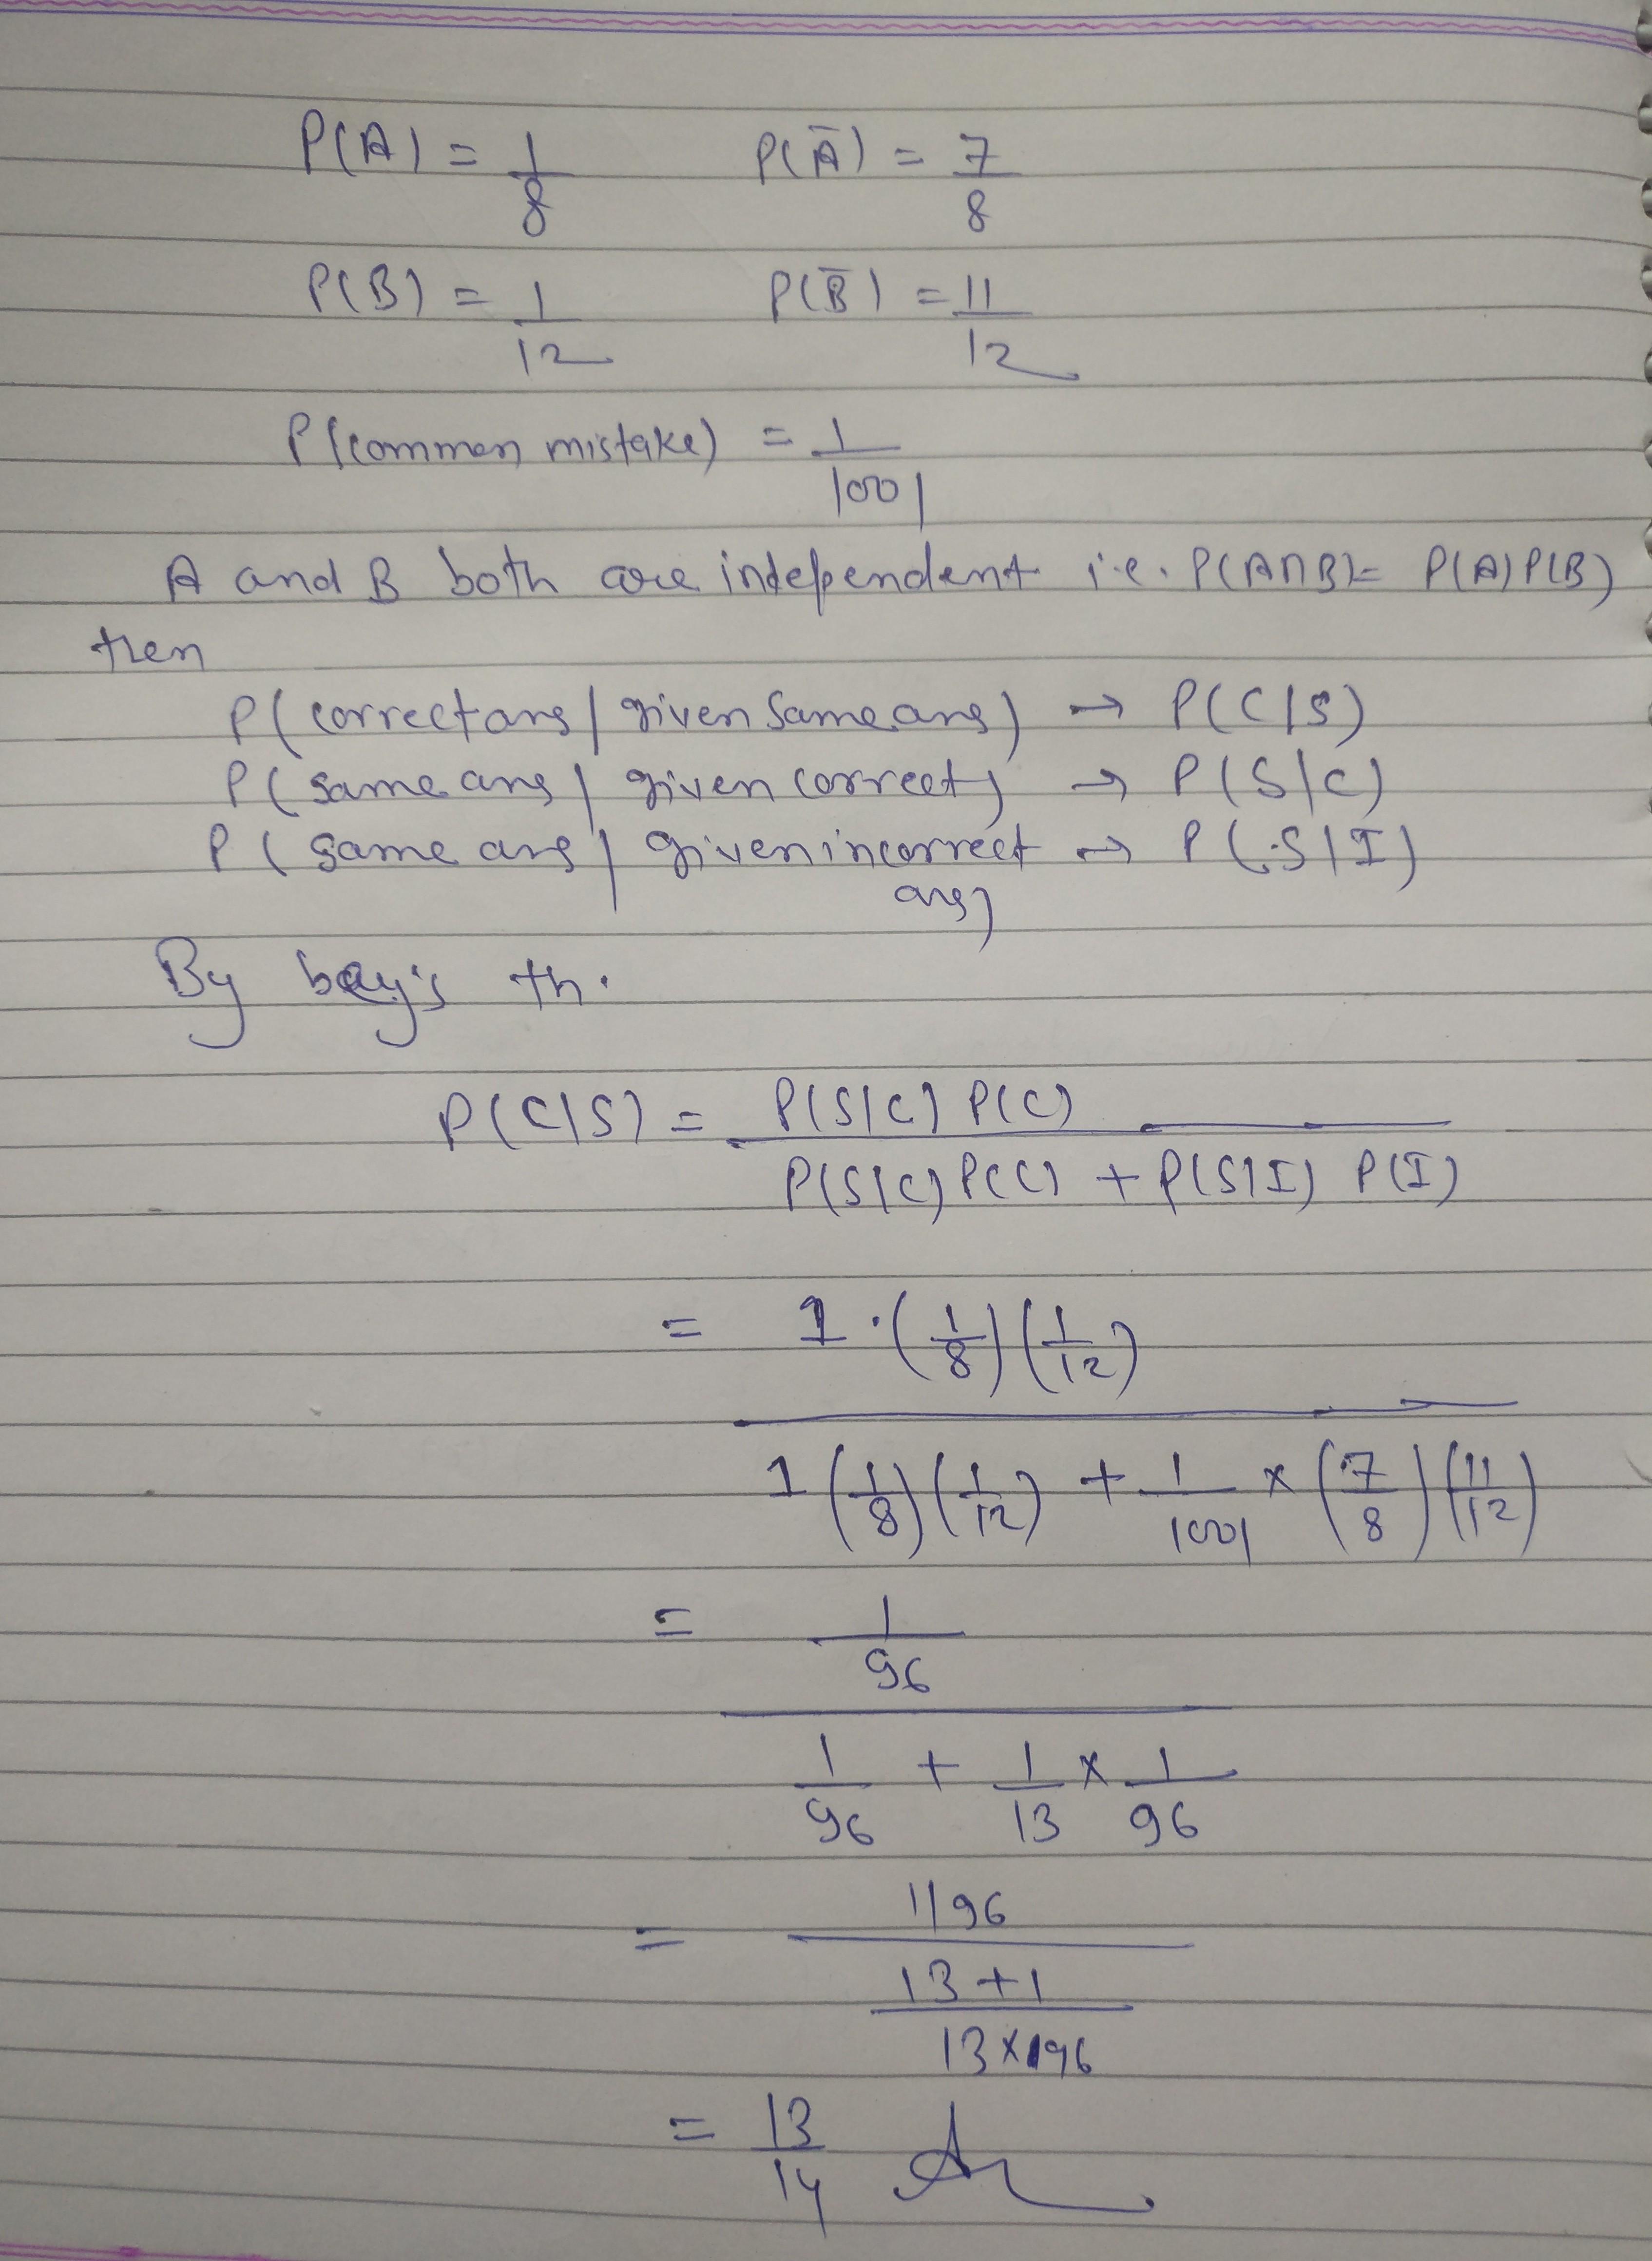 P(A) = 1/8 P(Ā) = 7/8
P(B) = 1/12 P(B̄) = 11/12
P(common mistake) = 1/1001
A and B both are independent i.e. P(A∩B) = P(A)P(B)
then
P(correct ans / given same ans) → P(C/S)
P(same ans / given correct) → P(S/C)
P(same ans / given incorrect → P(S/I)
ans)
By bay's th.
P(C/S) = P(S/C) P(C) / P(S/C) P(C) + P(S/I) P(I)
= 1·(1/8)(1/12) / 1(1/8)(1/12) + 1/1001 × (7/8)(11/12)
= 1/96 / 1/96 + 1/13 × 1/96
= 1/96 / 13+1 / 13×96
= 13/14 Ans